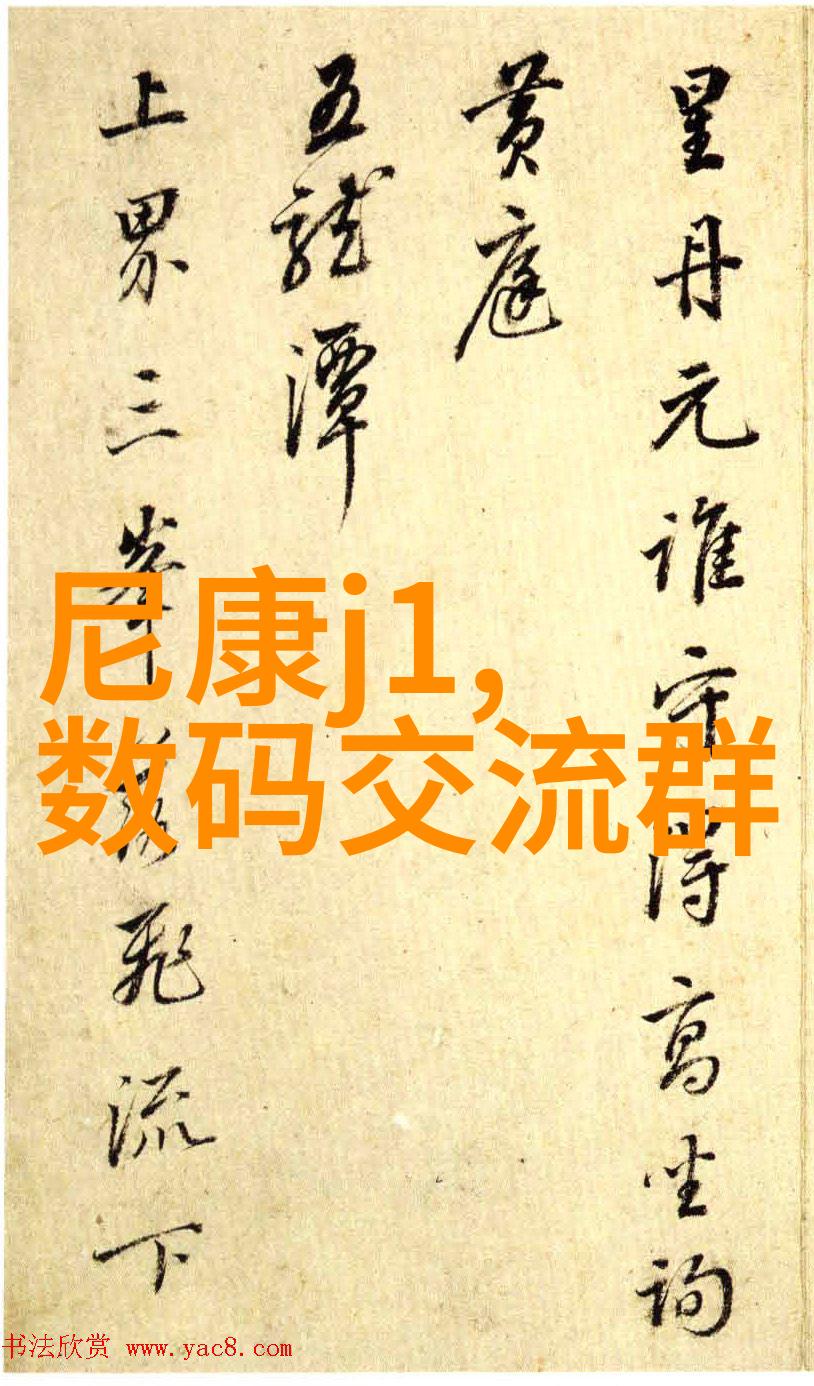 星丹元谁守得高坐询
黄庭
五龍潭
上界三峰落飛流下
尼康j1,
数码交流群
书法欣赏 www.yac8.com